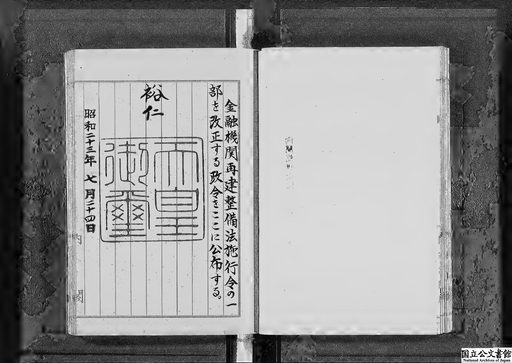 金融機関再建整備法施行令の一
部を改正する政令をここに公布する。
裕仁
天皇
御璽
昭和二十三年七月二十四日
内閣
国立公文書館
National Archives of Japan